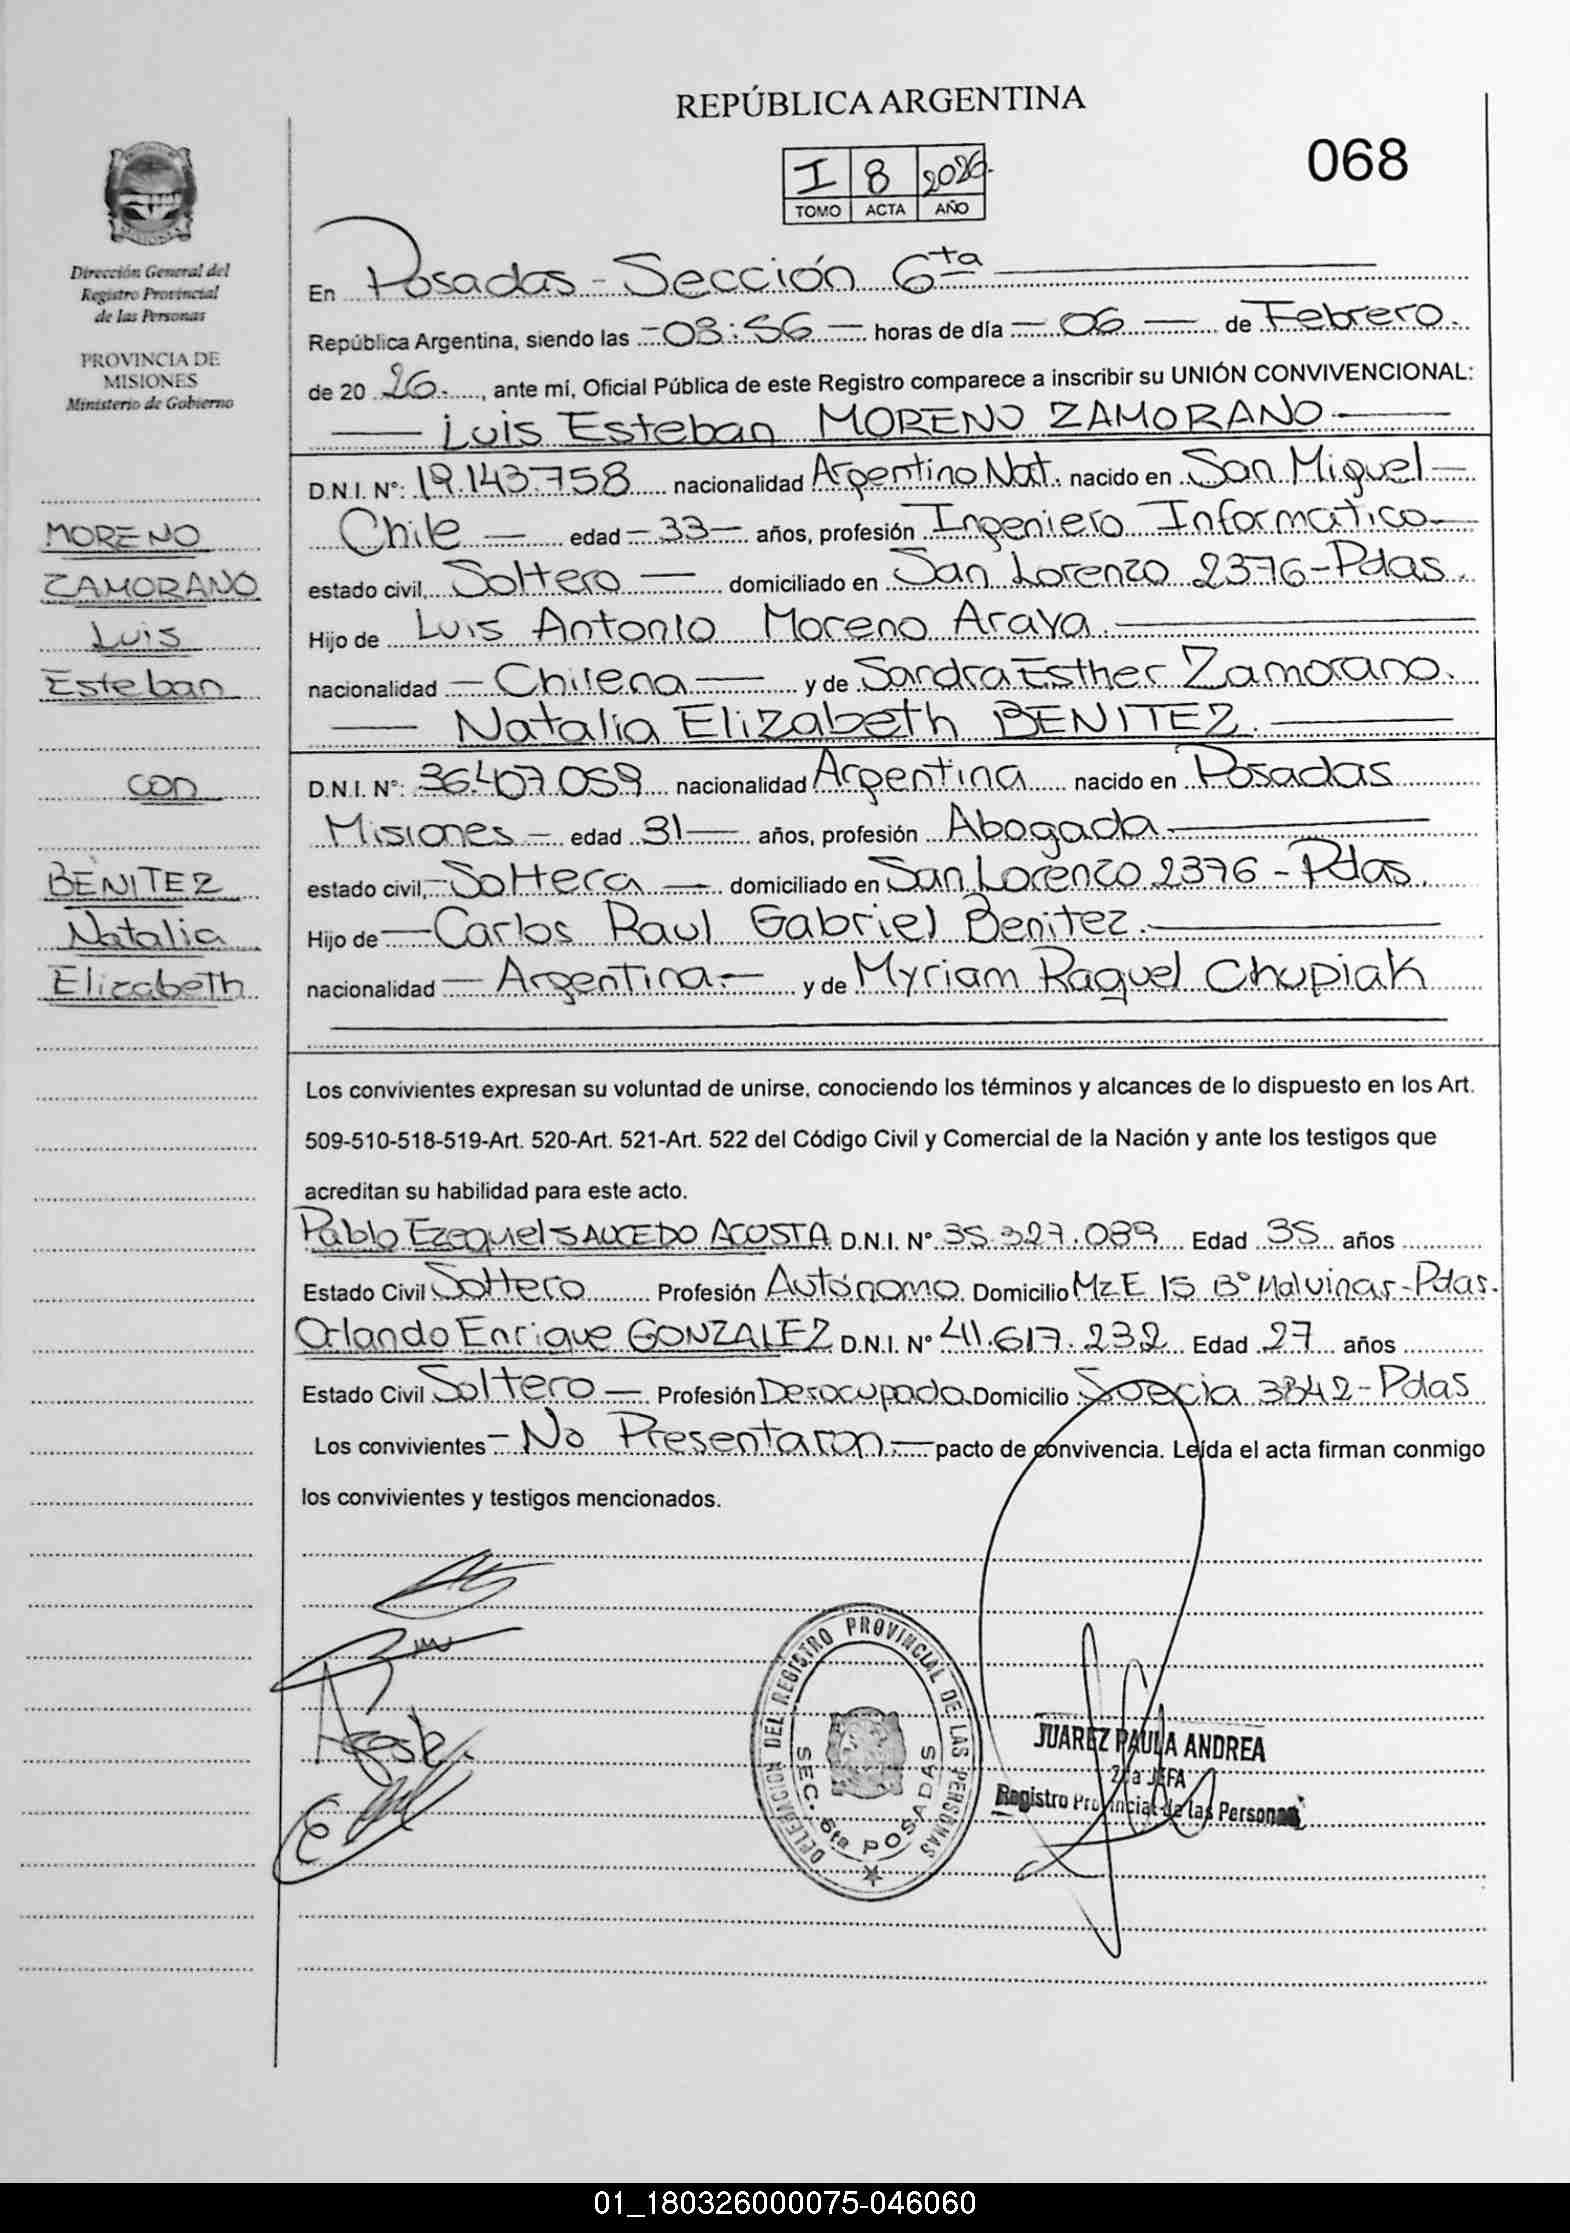 REPÚBLICA ARGENTINA
068
I 8 2026.
TOMO ACTA AÑO
Dirección General del
Registro Provincial
de las Personas
PROVINCIA DE
MISIONES
Ministerio de Gobierno
En Posadas - Sección 6ta
República Argentina, siendo las - 08:56 - horas de día - 06 - de Febrero.
de 20 26., ante mí, Oficial Pública de este Registro comparece a inscribir su UNIÓN CONVIVENCIONAL:
Luis Esteban MORENO ZAMORANO
D.N.I. N°: 19.143.758 nacionalidad Argentino Nat. nacido en San Miguel -
Chile - edad - 33 - años, profesión Ingeniero Informatico -
estado civil, Soltero - domiciliado en San Lorenzo 2376 - Pdas.
Hijo de Luis Antonio Moreno Araya.
nacionalidad - Chilena - y de Sandra Esther Zamorano.
Natalia Elizabeth BENITEZ.
D.N.I. N°: 36.407.059 nacionalidad Argentina nacido en Posadas
Misiones - edad 31 - años, profesión Abogada
estado civil, - Soltera - domiciliado en San Lorenzo 2376 - Pdas.
Hijo de - Carlos Raul Gabriel Benitez.
nacionalidad - Argentina. - y de Myriam Raquel Chupiak
MORENO
ZAMORANO
Luis
Esteban
con
BENITEZ
Natalia
Elizabeth
Los convivientes expresan su voluntad de unirse, conociendo los términos y alcances de lo dispuesto en los Art.
509-510-518-519-Art. 520-Art. 521-Art. 522 del Código Civil y Comercial de la Nación y ante los testigos que
acreditan su habilidad para este acto.
Pablo Ezequiel SAUCEDO ACOSTA D.N.I. N° 35.327.089 Edad 35 años
Estado Civil Soltero Profesión Autónomo. Domicilio Mz E 15 B° Malvinas - Pdas.
Orlando Enrique GONZALEZ D.N.I. N° 41.617.232 Edad 27 años
Estado Civil Soltero - Profesión Desocupado Domicilio Suecia 3842 - Pdas
Los convivientes - No Presentaron. - pacto de convivencia. Leída el acta firman conmigo
los convivientes y testigos mencionados.
DELEGACION DEL REGISTRO PROVINCIAL DE LAS PERSONAS
SEC. 6ta POSADAS
JUAREZ PAULA ANDREA
2da JEFA
Registro Provincial de las Personas
01_180326000075-046060